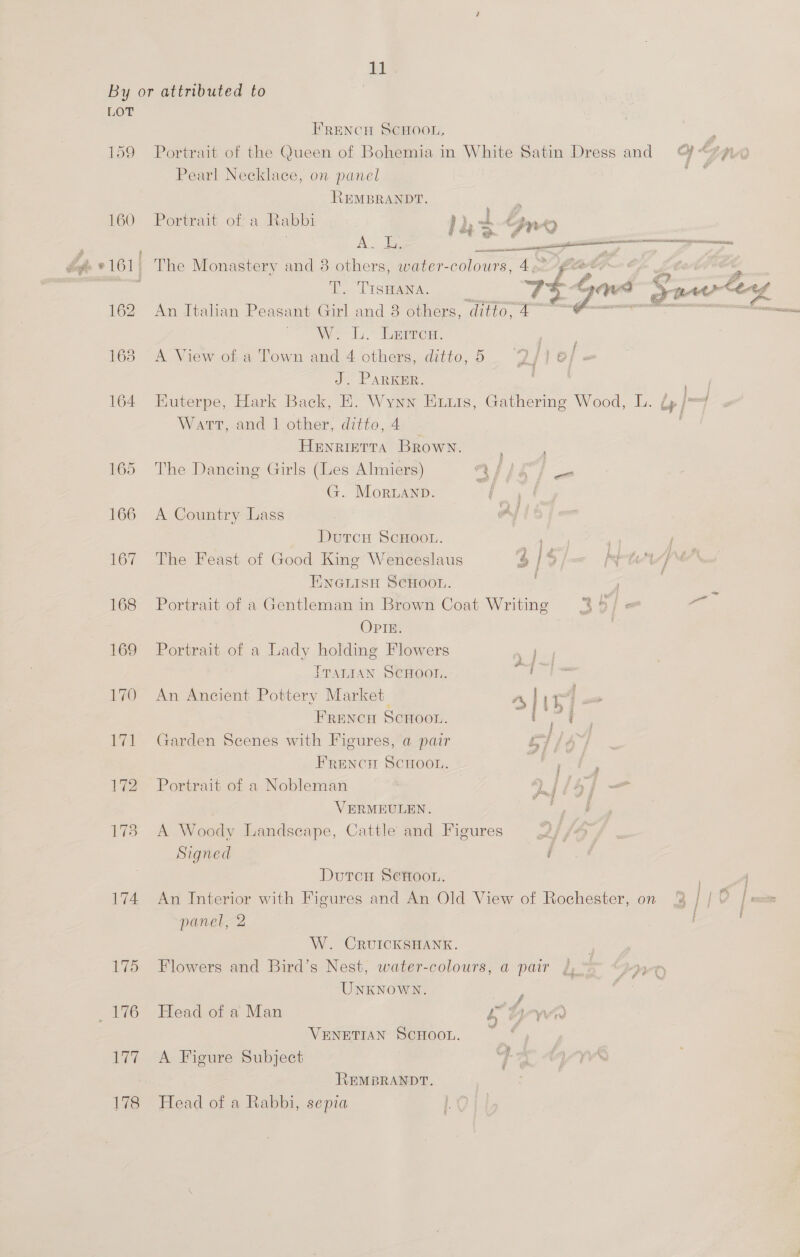 11
By or attributed to
LOT
FRENCH SCHOOL.
159 Portrait of the Queen of Bohemia in White Satin Dress and
Pearl Necklace, on panel
REMBRANDT.
160 Portrait of a Rabbi
A. L.
*161 The Monastery and 3 others, water-colours, 4
T. TISHANA.
162 An Italian Peasant Girl and 3 others, ditto, 4
W. L. LEITCH.
163 A View of a Town and 4 others, ditto, 5
J. PARKER.
164 Euterpe, Hark Back, E. WYNN ELLIS, Gathering Wood, L.
WATT, and 1 other, ditto, 4
HENRIETTA BROWN.
165 The Dancing Girls (Les Almiers)
G. MORLAND.
166 A Country Lass
DUTCH SCHOOL.
167 The Feast of Good King Wenceslaus
ENGLISH SCHOOL.
168 Portrait of a Gentleman in Brown Coat Writing
OPIE.
169 Portrait of a Lady holding Flowers
ITALIAN SCHOOL.
170 An Ancient Pottery Market
FRENCH SCHOOL.
171 Garden Scenes with Figures, a pair
FRENCH SCHOOL.
172 Portrait of a Nobleman
VERMEULEN.
173 A Woody Landscape, Cattle and Figures
Signed
DUTCH SCHOOL.
174 An Interior with Figures and An Old View of Rochester, on
panel, 2
W. CRUICKSHANK.
175 Flowers and Bird's Nest, water-colours, a pair
UNKNOWN.
176 Head of a Man
VENETIAN SCHOOL.
177 A Figure Subject
REMBRANDT.
178 Head of a Rabbi, sepia